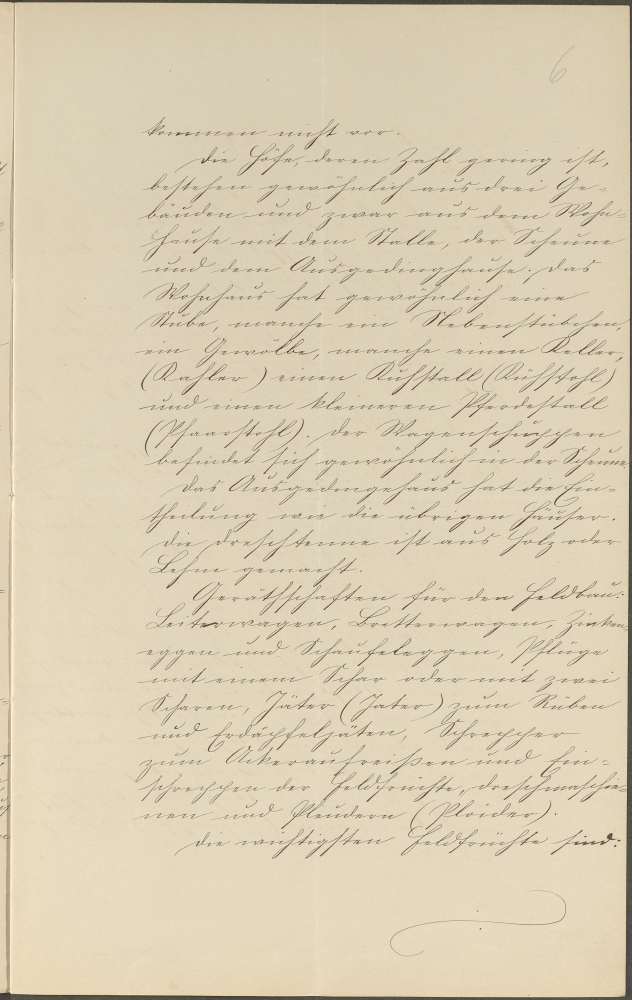 6
kommen nicht vor.
Die Höfe, deren Zahl gering ist,
bestehen gewöhnlich aus drei Ge-
bäuden und zwar aus dem Wohn-
hause mit dem Stalle, der Scheune
und dem Ausgedinghause. Das
Wohnhaus hat gewöhnlich eine
Stube, manche ein Nebenstübchen,
ein Gewölbe, manche einen Keller,
(Kahler) einen Kuhstall (Kühstohl)
und einen kleineren Pferdestall
(Pfaarstohl). Der Wagenschuppen
befindet sich gewöhnlich in der Scheune.
Das Ausgedingehaus hat die Ein-
theilung wie die übrigen Häuser.
Die Dreschtenne ist aus Holz oder
Lehm gemacht.
Geräthschaften für den Feldbau:
Leiterwagen, Bretterwagen, Zinken-
eggen und Schaufeleggen, Pflüge
mit einem Schar oder mit zwei
Scharen, Jäter (Jater) zum Rüben
und Erdäpfeljäten, Schrepper
zum Ackeraufreißen und Ein-
schreppen der Feldfrüchte, Dreschmaschi-
nen und Pleudern (Ploider).
Die wichtigsten Feldfrüchte sind: